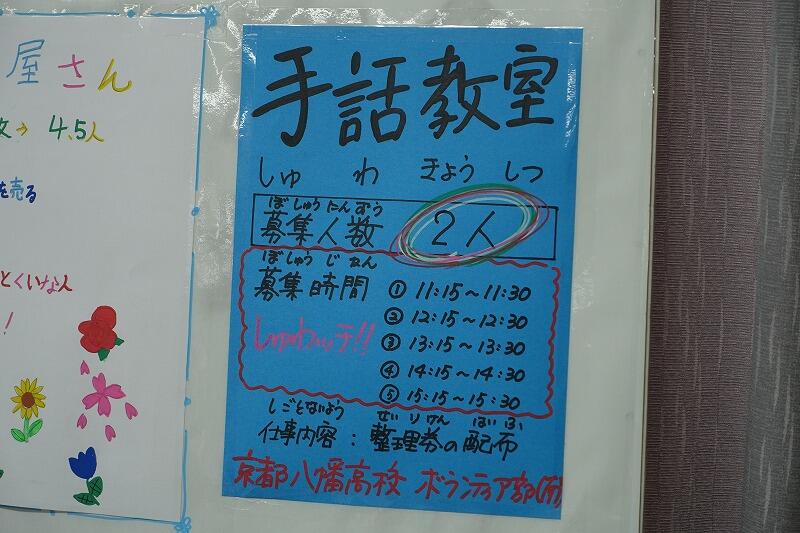 屋さん
→ 4,5人
を売る
とくいな人
!
手話教室
しゅ わ きょう しつ
ぼしゅうにんずう
募集人数 2人
ぼしゅう じかん
募集時間 ① 11:15~11:30
② 12:15~12:30
しゅわッチ!! ③ 13:15~13:30
④ 14:15~14:30
⑤ 15:15~15:30
しごとないよう せいりけん はいふ
仕事内容:整理券の配布
京都八幡高校 ボランティア部(南)